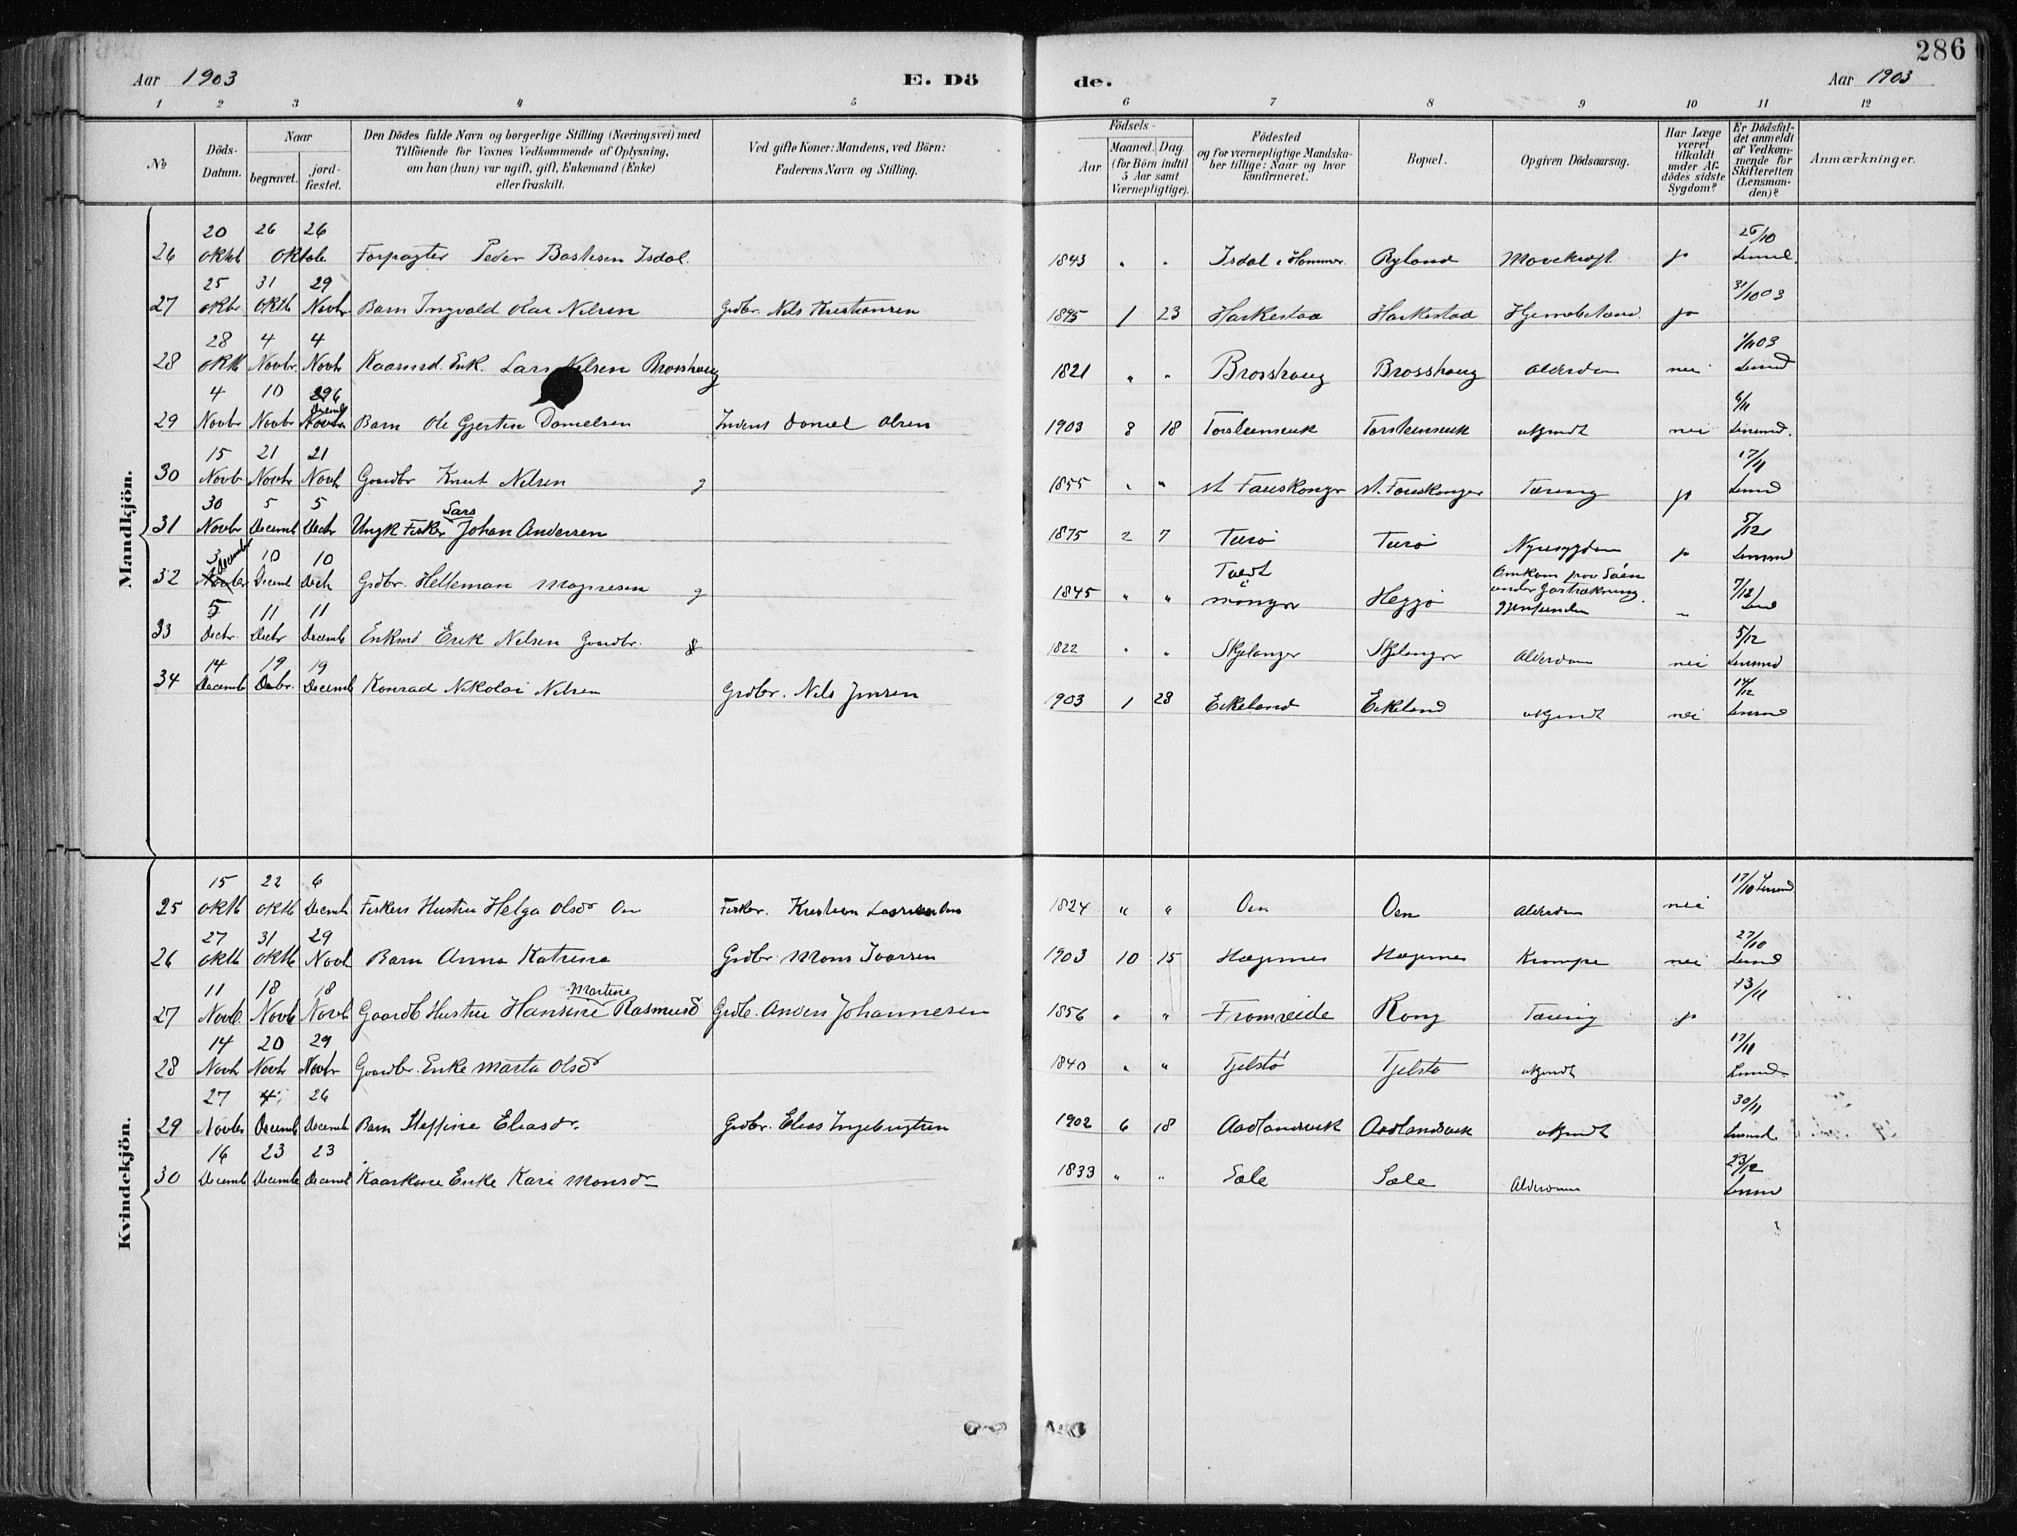 286
Aar 1903 E. Dö de. Aar 1903
1 2 3 4 5 6 7 8 9 10 11 12
No
Döds-Datum.
Naar
begravet.
jord-fæstet.
Den Dödes fulde Navn og borgerlige Stilling (Næringsvei) med
Tilföiende for Voxnes Vedkommende af Oplysning,
om han (hun) var ugift, gift, Enkemand (Enke)
eller fraskilt.
Ved gifte Koner: Mandens, ved Börn:
Faderens Navn og Stilling.
Födsels-
Aar
Maaned. Dag
(for Börn indtil
5 Aar samt
Værnepligtige).
Födested
og for værnepligtige Mandska-
ber tillige: Naar og hvor
konfirmeret.
Bopæl.
Opgiven Dödsaarsag.
Har Læge
været
tilkaldt
under Af-
dödes sidste
Sygdom?
Er Dödsfal-
det anmeldt
af Vedkom-
mende for
Skifteretten
(Lensman-
den)?
Anmærkninger.
Mandkjön.
20 26 26
26 Oktb Oktob Forpagter Peder Bastesen Isdal. 1843 " " Isdal i Hammer Ryland Mavekræft ja
25 31 29 31/10 03
27 Oktbr Oktb Novbr Barn Ingvald Olai Nilsen Grdbr. Nils Kristiansen 1895 1 23 Harkestad Harkestad ja
28 4 4
28 Oktb Novbr. Novbr Enk. Lars Nilsen Brosshaug 1821 " " Brosshaug Brosshaug Alderdom nei Lensmd
4 10 6/11
29 Novbr Novbr Decemb Barn Ole Gjertin Danielsen Daniel Olsen 1903 8 18 Torsteinsvik Torsteinsvik ukjendt nei Lensmd.
15 21 21 17/11
30 Novb Novbr Novbr Gaardbr Knut Nilsen g 1855 " " st. Fauskanger st. Fauskanger Tæring ja Lensmd
30 5 5 Lars 5/12
31 Novbr Decemb Decbr Ungk Fisker Johan Andersen 1875 2 7 Turö Turö Nyresygdom ja Lensmd
3 December 10 10
32 Novbr Decemb Decb Grdbr. Helleman Magnesen g 1845 " " Mangør Heggö Omkom paa Söen under 7/12
5 11 11 5/12
33 Decbr. Decbr Decemb Enkmd Erik Nilsen Gaardbr. 1822 " " Skjelanger Skjelanger Alderdom nei Lensmd
14 19 19 14/12
34 Decemb Decbr. Decemb Konrad Nikolai Nilsen Grdbr. Nils Jensen 1903 1 28 Eikeland Eikeland ukjendt nei Lensmd
Kvindekjön.
15 22 6 17/10 Lensmd
25 Oktb Oktb Decemb Fiskers Hustru Helga Olsdr Oen Fisker. Kristian 1824 " " Oen Oen Alderdom nei
27 31 29 27/10
26 Oktb Oktb Novb Barn Anna Katrine Grdbr. Mons Ivarsen 1903 10 15 Hagenes Hagenes Krampe nei Lensmd
11 18 18 Martine 13/11
27 Novb. Novb Novb Gaardb Hustru Hansine Rasmusd Grdb. Anders Johannesen 1856 " " Fromreide Rong Tæring ja
14 20 29 17/11
28 Novb Novbr Novbr Gaardbr. Enke Marta Olsdr 1840 " " Tjelstö Tjelstö ukjendt Lensmd.
27 4 26 30/11
29 Novbr Decemb Decemb Barn Steffine Eliasdr. Grdbr. Elias Ingebrigtsen 1902 6 18 Aadlandsvik Aadlandsvik ukjendt Lensmd.
16 23 23 23/12
30 Decemb Decemb Decemb Kaarkone Enke Kari Monsdr 1833 " " Sæle Sæle Alderdom Lensmd